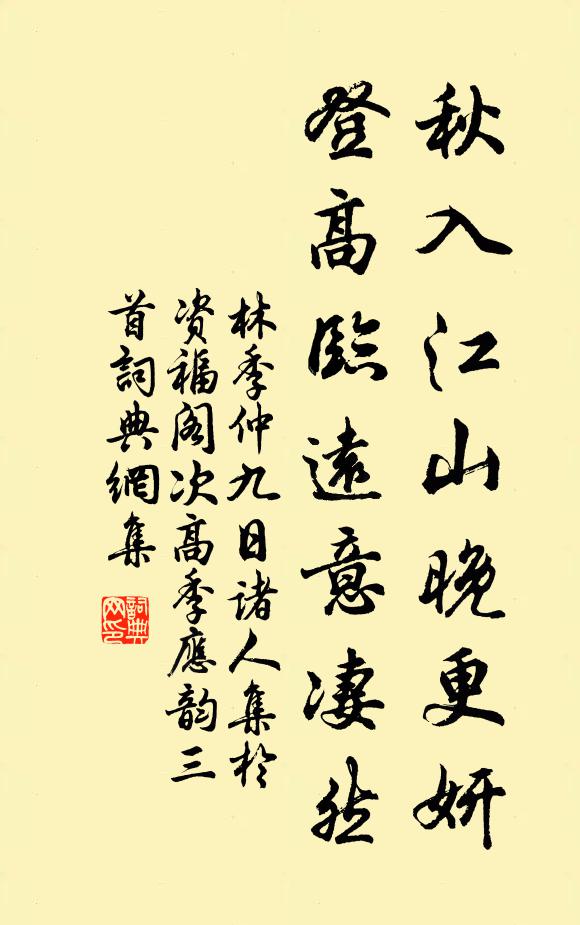 秋入江山晚更妍
登高臨遠意凄然
林季仲九日诸人集於
资福阁次高季應韵三
首詞典網集
詞典
网印